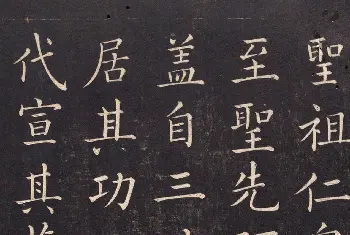 聖祖仁
至聖先
盖自三
居其功
代宣其